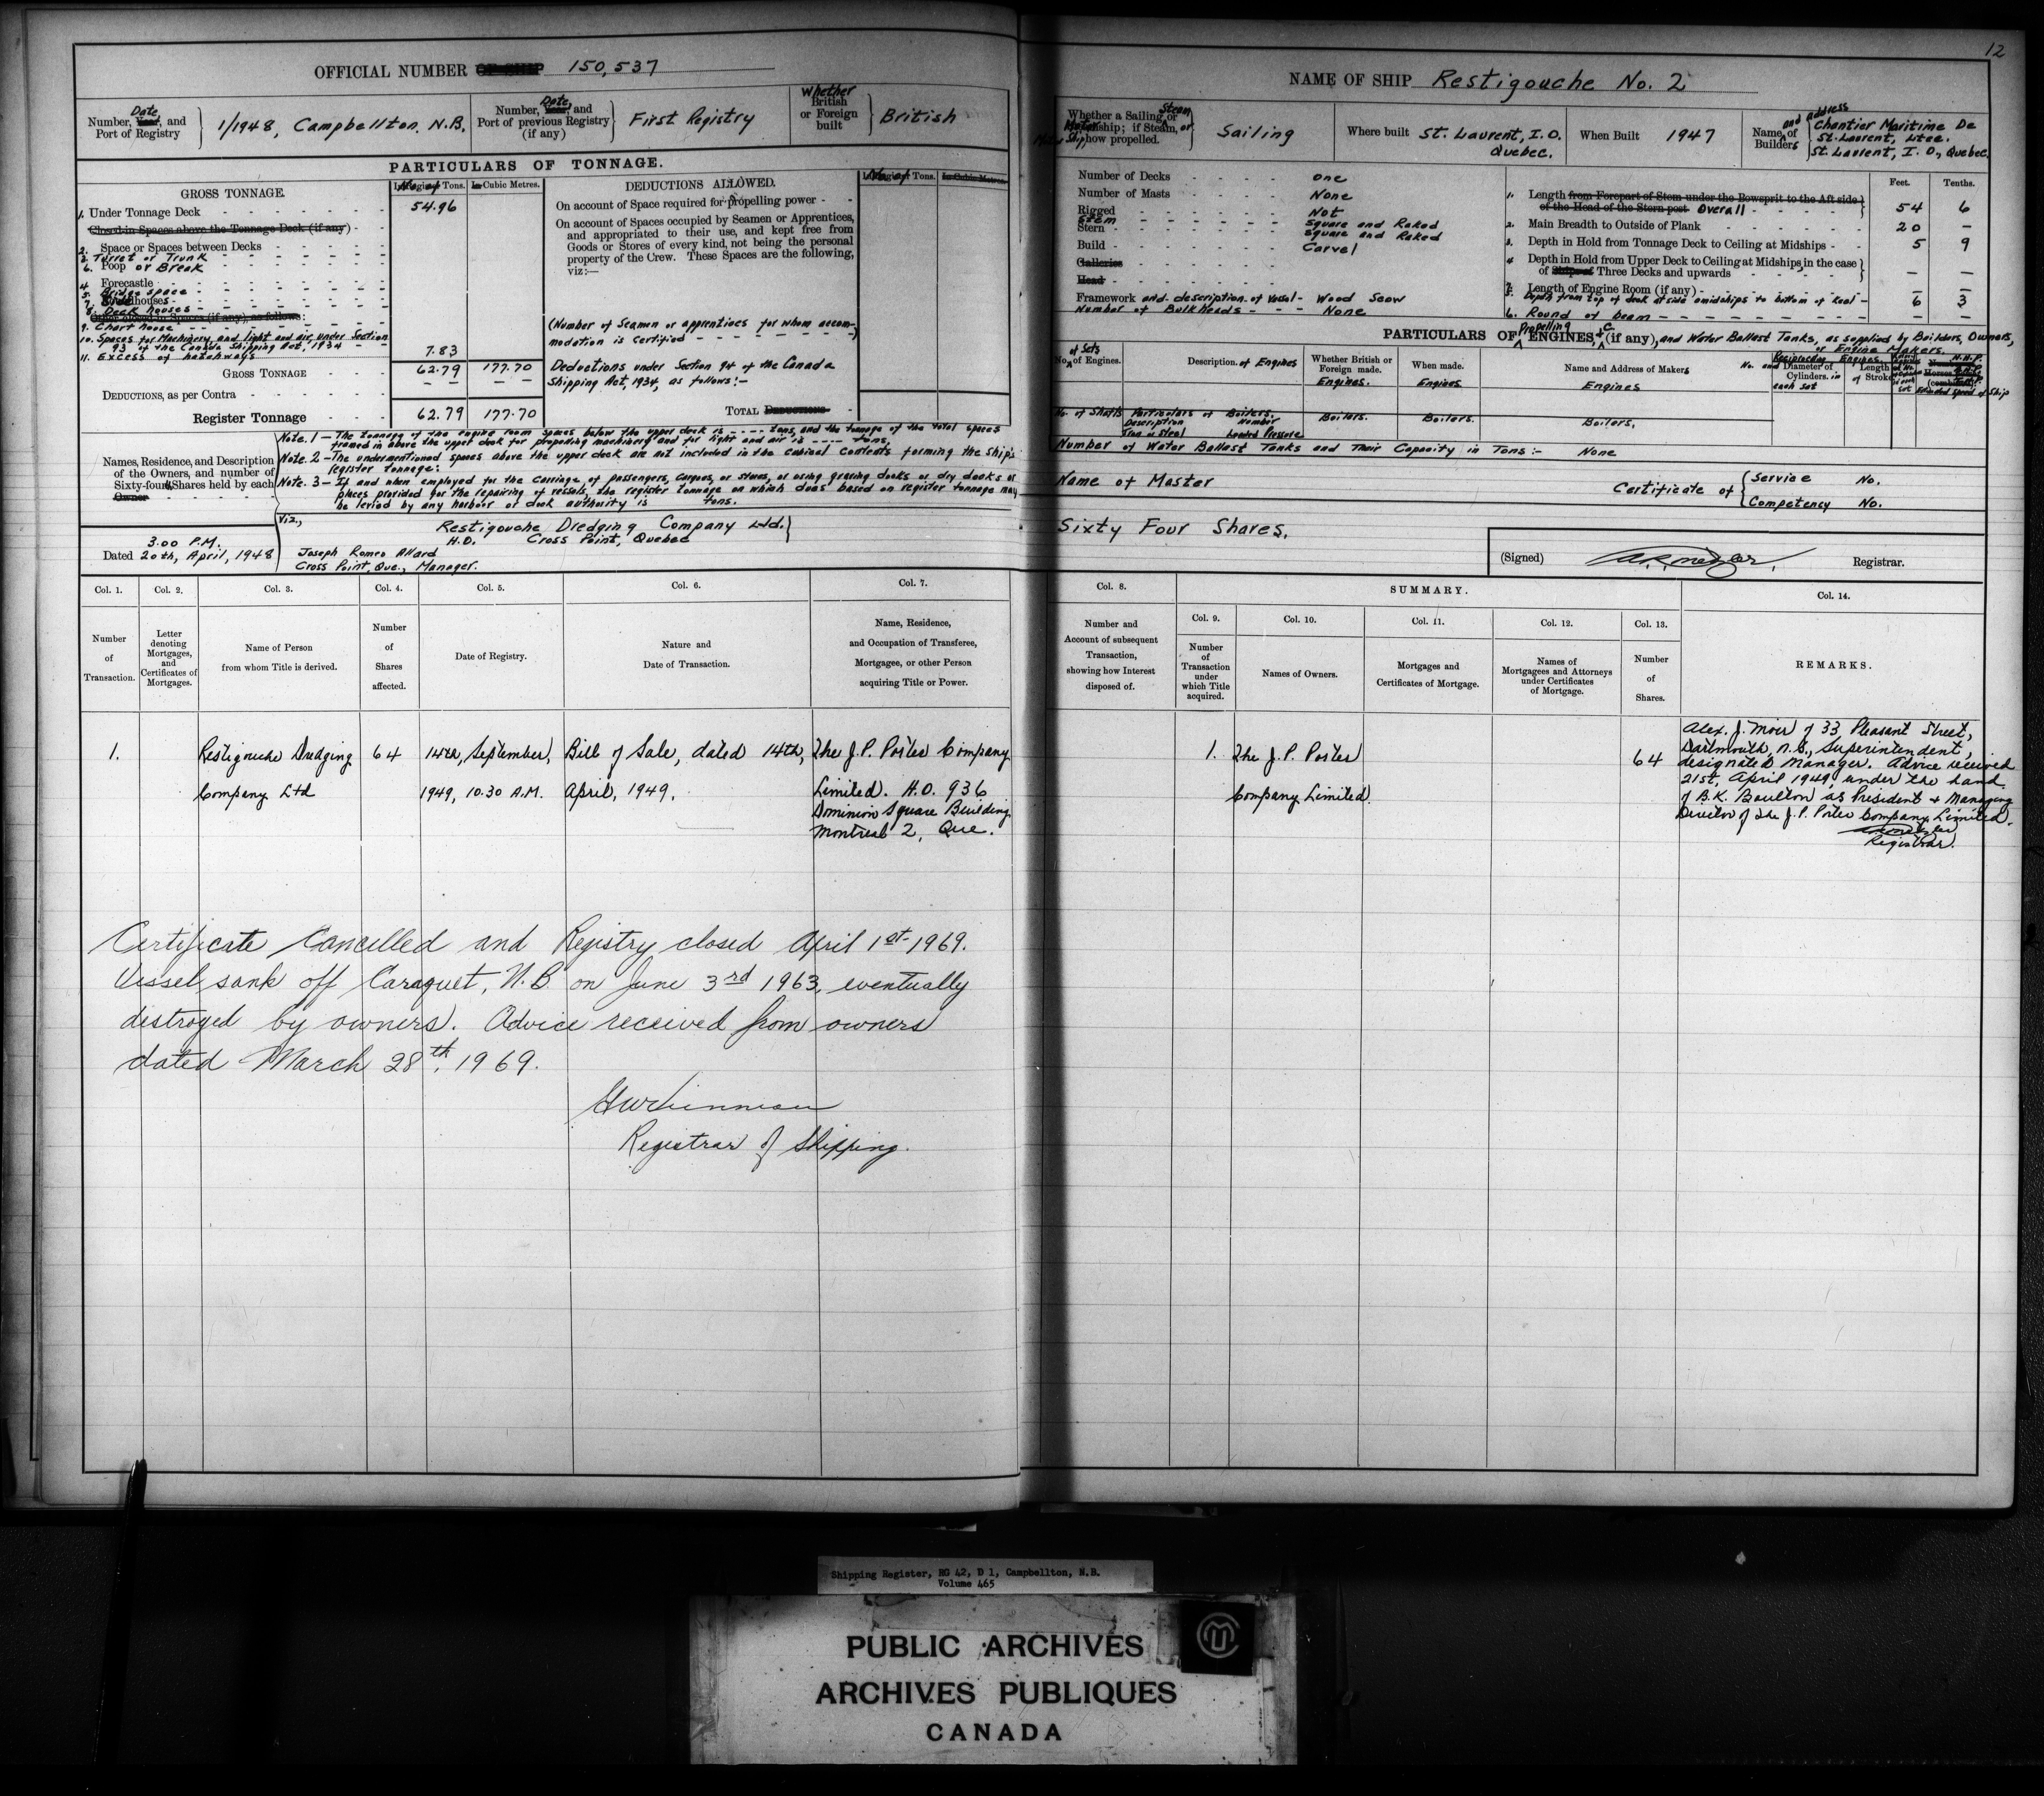 12
OFFICIAL NUMBER OF SHIP 150,537
Date
Number, Year, and
Port of Registry
1/1948, Campbellton, N.B.
Date
Number, Year, and
Port of previous Registry
(if any)
First Registry
Whether
British
or Foreign
built
British
PARTICULARS OF TONNAGE.
GROSS TONNAGE.
No. of Tons.
In Cubic Metres.
1. Under Tonnage Deck 54.96
Closed-in Spaces above the Tonnage Deck (if any)
2. Space or Spaces between Decks
3. Turret or Trunk
6. Poop or Break
4. Forecastle
5. Bridge space
7. houses
8. Deck houses
Other closed-in Spaces (if any), as follows:
9. Chart house
10. Spaces for Machinery, and light and air, under Section
93 of the Canada Shipping Act, 1934
11. Excess of hatchways 7.83
GROSS TONNAGE 62.79 177.70
DEDUCTIONS, as per Contra — — — —
Register Tonnage 62.79 177.70
DEDUCTIONS ALLOWED.
No. of Tons.
In Cubic Metres.
On account of Space required for propelling power
On account of Spaces occupied by Seamen or Apprentices,
and appropriated to their use, and kept free from
Goods or Stores of every kind, not being the personal
property of the Crew. These Spaces are the following,
viz:—
(Number of Seamen or apprentices for whom accom-
modation is certified - - - - - -)
Deductions under Section 94 of the Canada
Shipping Act, 1934, as follows:-
TOTAL DEDUCTIONS
Note. 1 - The tonnage of the engine room spaces below the upper deck is - - - - tons, and the tonnage of the total spaces
framed in above the upper deck for propelling machinery and for light and air is - - - - tons.
Note. 2 - The undermentioned spaces above the upper deck are not included in the cubical contents forming the ship's
register tonnage:
Note. 3 - If and when employed for the carriage of passengers, cargoes, or stores, or using graving docks or dry docks or
places provided for the repairing of vessels, the register tonnage on which dues based on register tonnage may
be levied by any harbour or dock authority is tons.
Names, Residence, and Description
of the Owners, and number of
Sixty-fourth Shares held by each
Owner
Viz.,
Restigouche Dredging Company Ltd.
H.O. Cross Point, Quebec
Joseph Romeo Allard
Cross Point, Que., Manager.
3.00 P.M.
Dated 20th, April, 1948
NAME OF SHIP Restigouche No. 2
Whether a Sailing, Steam or
Motor Ship; if Steam, or
Motor Ship, how propelled.
Sailing
Where built St. Laurent, I.O.
Quebec.
When Built 1947
Name and address of
Builders
Chantier Maritime De
St. Laurent, Ltee.
St. Laurent, I.O., Quebec.
Number of Decks One
Number of Masts None
Rigged Not
Stem Square and Raked
Stern Square and Raked
Build Carvel
Galleries
Head
Framework and description of vessel - Wood Scow
Number of Bulkheads - - - None
Feet. Tenths.
1. Length from Forepart of Stem under the Bowsprit to the Aft side
of the Head of the Stern post Overall 54 6
2. Main Breadth to Outside of Plank 20 —
3. Depth in Hold from Tonnage Deck to Ceiling at Midships 5 9
4. Depth in Hold from Upper Deck to Ceiling at Midships, in the case
of Ships of Three Decks and upwards — —
7. Length of Engine Room (if any) — —
5. Depth from top of deck at side amidships to bottom of keel - 6 3
6. Round of beam — —
PARTICULARS OF Propelling ENGINES, &c. (if any), and Water Ballast Tanks, as supplied by Builders, Owners,
or Engine Makers.
No. of Sets of Engines.
Description of Engines
Whether British or
Foreign made.
Engines.
When made.
Engines
Name and Address of Makers
Engines
Reciprocating Engines.
No. and Diameter of
Cylinders in
each set
Length
of Stroke
N.H.P.
Estimated speed of Ship
No. of Shafts
Particulars of Boilers.
Description Number
Iron or Steel Loaded Pressure
Boilers.
Boilers.
Boilers.
Number of Water Ballast Tanks and Their Capacity in Tons:- None
Name of Master
Certificate of
Service No.
Competency No.
Sixty Four Shares.
(Signed) Registrar.
Col. 1.
Number
of
Transaction.
Col. 2.
Letter
denoting
Mortgages,
and
Certificates of
Mortgages.
Col. 3.
Name of Person
from whom Title is derived.
Col. 4.
Number
of
Shares
affected.
Col. 5.
Date of Registry.
Col. 6.
Nature and
Date of Transaction.
Col. 7.
Name, Residence,
and Occupation of Transferee,
Mortgagee, or other Person
acquiring Title or Power.
Col. 8.
Number and
Account of subsequent
Transaction,
showing how Interest
disposed of.
SUMMARY.
Col. 9.
Number
of
Transaction
under
which Title
acquired.
Col. 10.
Names of Owners.
Col. 11.
Mortgages and
Certificates of Mortgage.
Col. 12.
Names of
Mortgagees and Attorneys
under Certificates
of Mortgage.
Col. 13.
Number
of
Shares.
Col. 14.
REMARKS.
1.
Restigouche Dredging
Company Ltd
64
14th, September,
1949, 10.30 A.M.
Bill of Sale, dated 14th,
April, 1949.
The J.P. Porter Company
Limited. H.O. 936
Dominion Square Building
Montreal 2, Que.
1.
The J.P. Porter
Company Limited
64
Alex. J. Moir of 33 Pleasant Street,
Dartmouth, N.S., Superintendent,
designated Manager. Advice received
21st, April 1949, under the hand
of B.K. Boulton as President & Managing
Director of The J.P. Porter Company Limited.
Registrar.
Certificate Cancelled and Registry closed April 1st 1969.
Vessel sank off Caraquet, N.B. on June 3rd 1963, eventually
distroyed by owners. Advice received from owners
dated March 28th, 1969.
Registrar of Shipping.
Shipping Register, RG 42, D 1, Campbellton, N.B.
Volume 465
PUBLIC ARCHIVES
ARCHIVES PUBLIQUES
CANADA